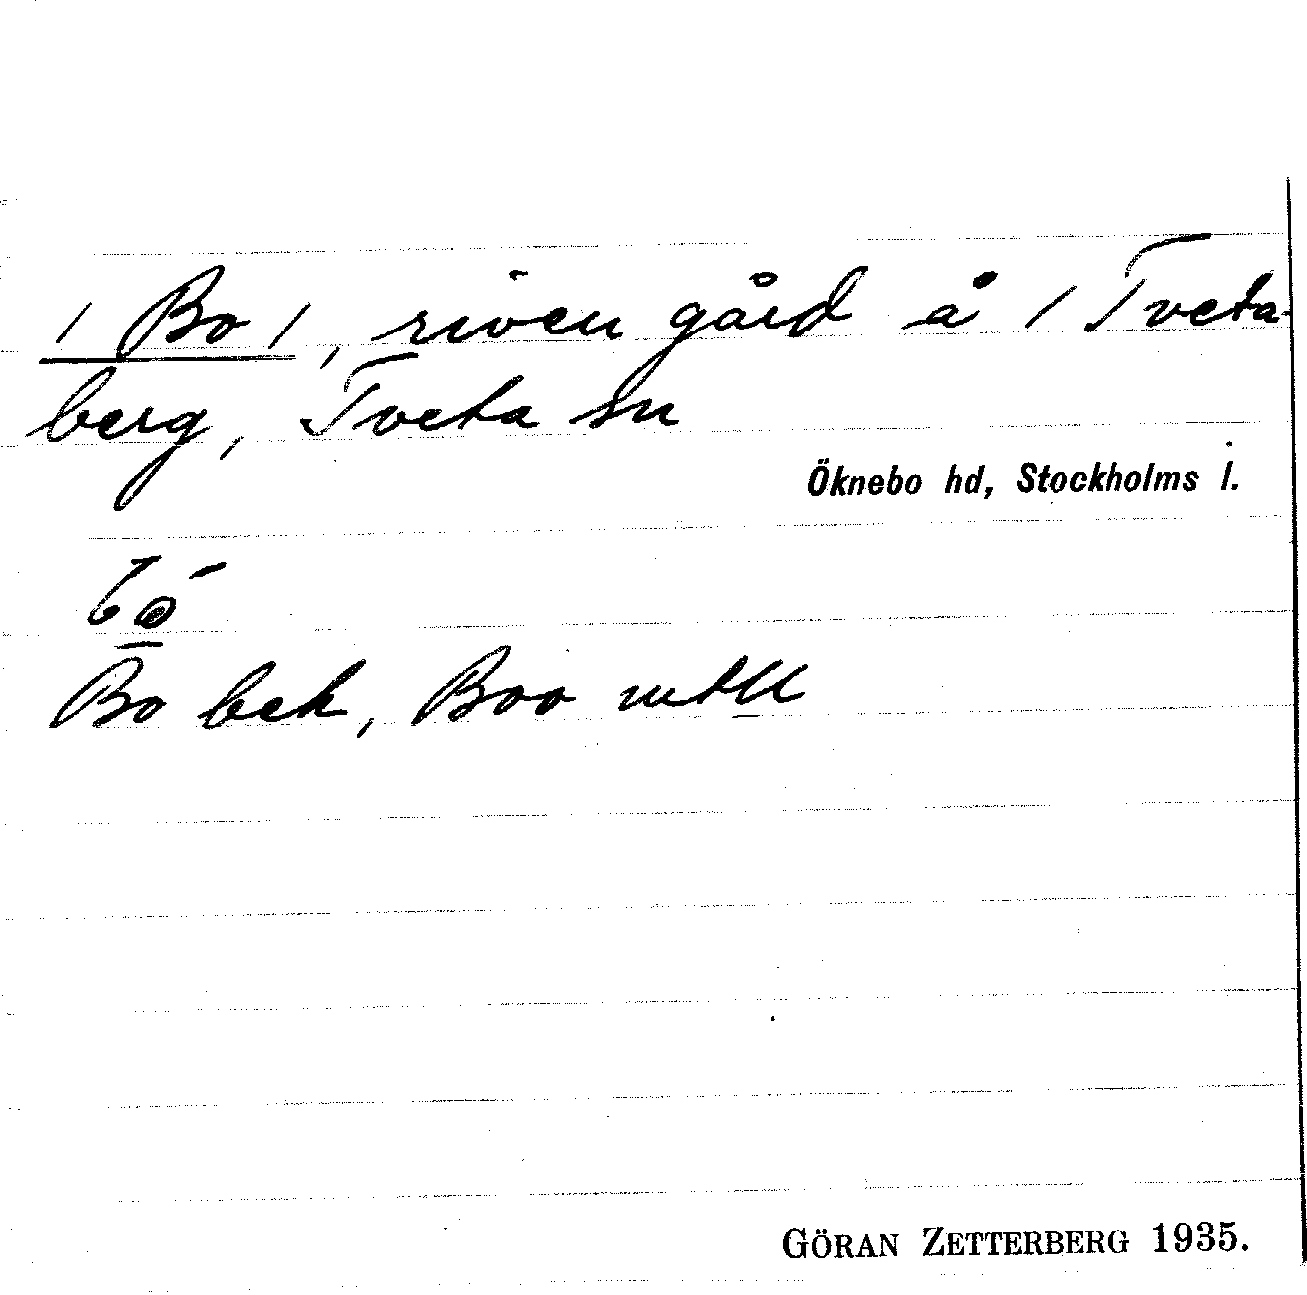 / Bo /, riven gård å / Tveta-
berg, Tveta sn
Öknebo hd, Stockholms l.
Bo bek, Boo mtll
GÖRAN ZETTERBERG 1935.